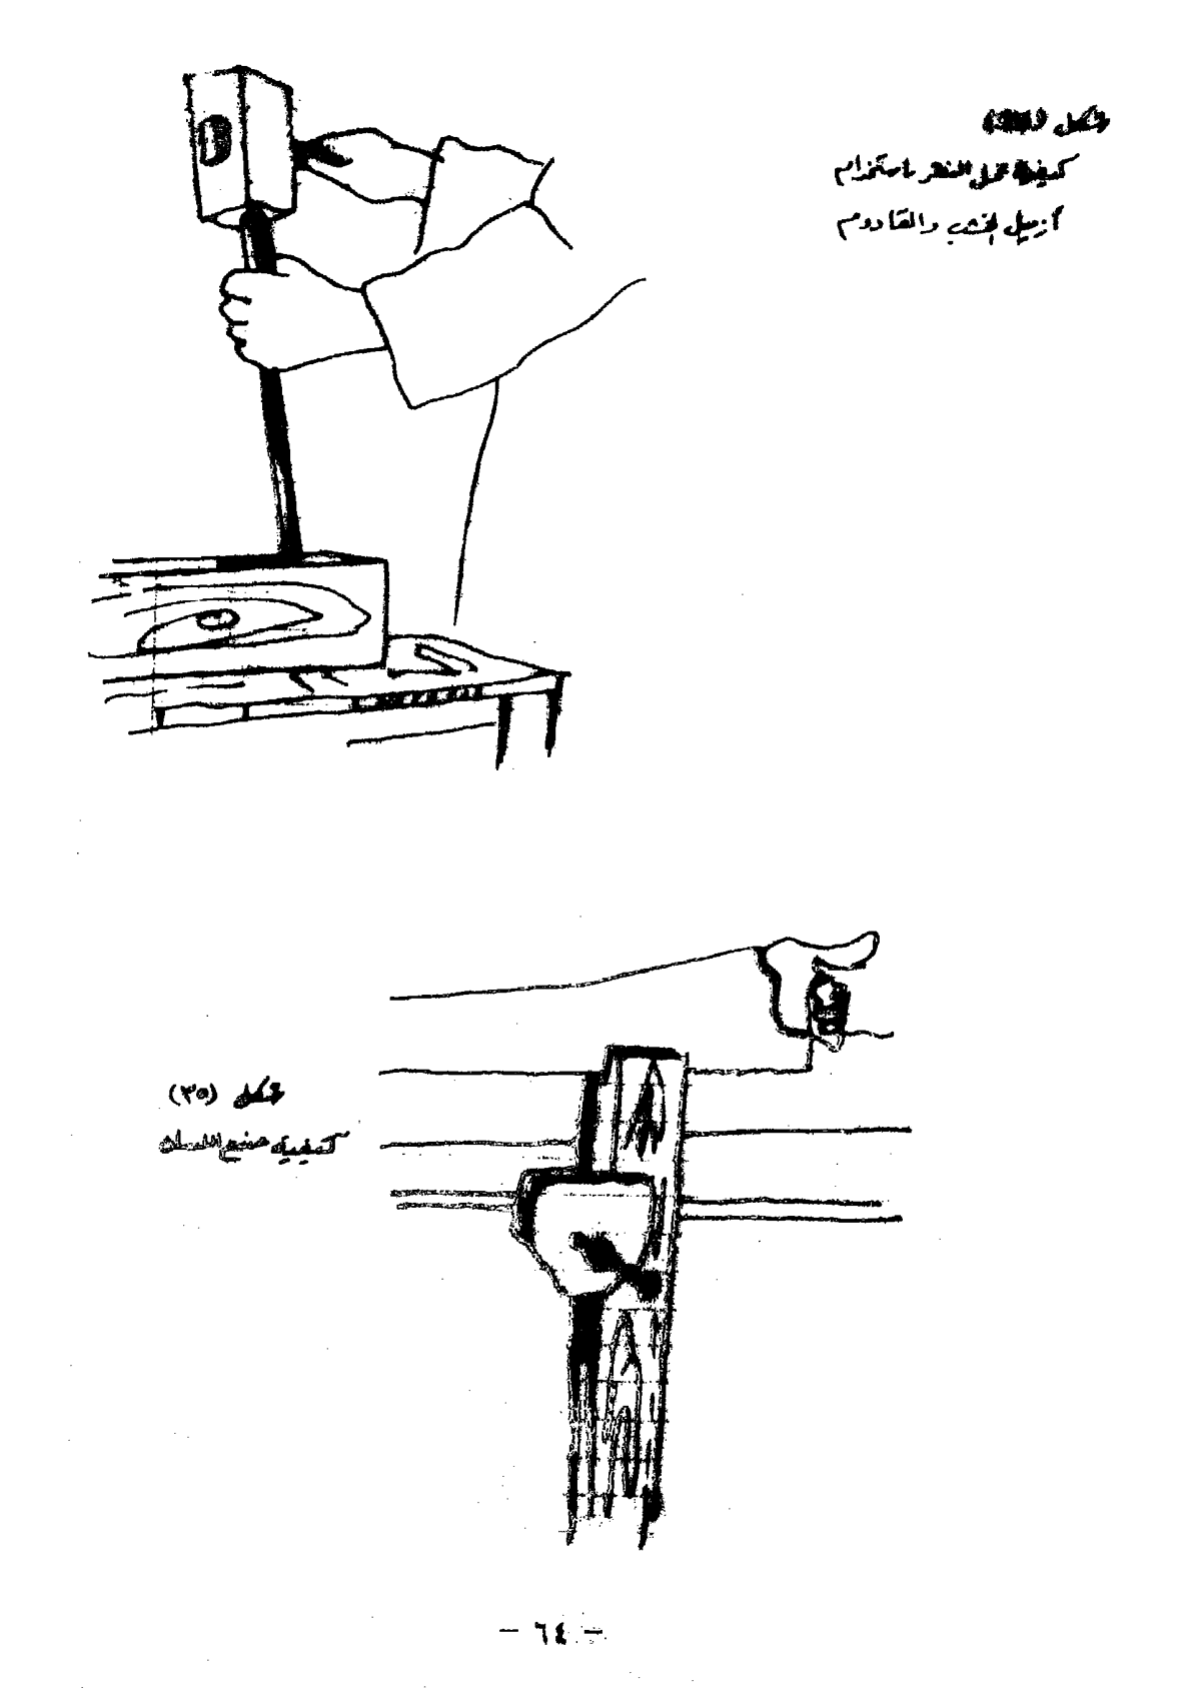 شكل
كيفية عمل النقر باستخدام
أزميل الخشب والقادوم
شكل (٣٥)
كيفية صنع اللسان
- ٦٤ -